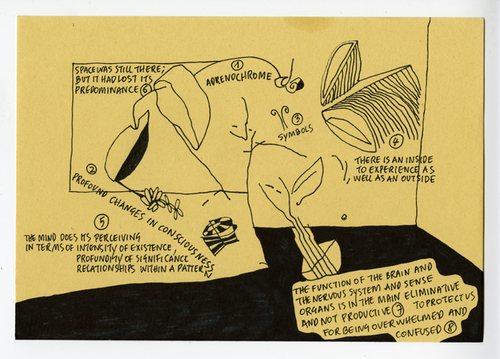 SPACE WAS STILL THERE;
BUT IT HAD LOST ITS
PREDOMINANCE 6
1
ADRENOCHROME
3
SYMBOLS
4
THERE IS AN INSIDE
TO EXPERIENCE AS
WELL AS AN OUTSIDE
2
PROFOUND CHANGES IN CONSCIOUSNESS
5
THE MIND DOES ITS PERCEIVING
IN TERMS OF INTENSITY OF EXISTENCE,
PROFUNDITY OF SIGNIFICANCE
RELATIONSHIPS WITHIN A PATTERN
THE FUNCTION OF THE BRAIN AND
THE NERVOUS SYSTEM AND SENSE
ORGANS IS IN THE MAIN ELIMINATIVE
AND NOT PRODUCTIVE 7 TO PROTECT US
FOR BEING OVERWHELMED AND
CONFUSED 8